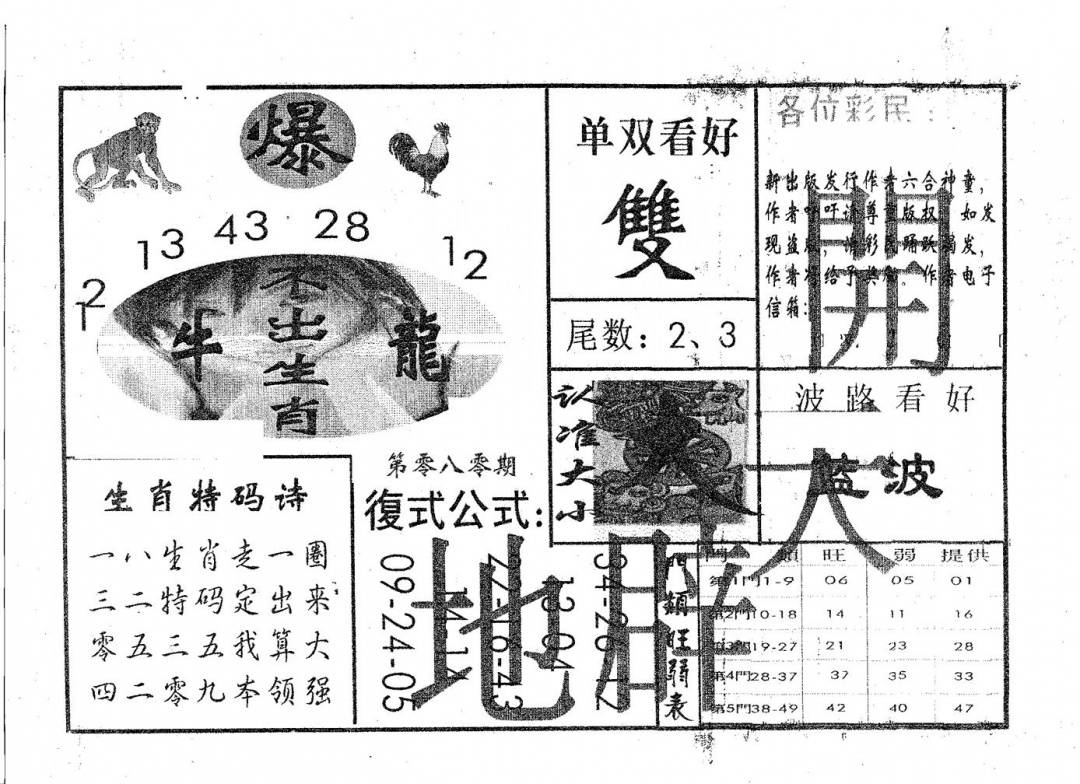 爆
13 43 28 12
12
不出生肖
牛 龍
单双看好
雙
尾数：2、3
各位彩民：
新出版发行作者六合神童，
作者呼吁请尊重版权，如发
现盗版，请彩民踊跃
作者将给予奖励。作者电子
信箱：
開
认准大小
大
波路看好
蓝波
第零八零期
復式公式：
生肖特码诗
一八生肖走一圈
三二特码定出来
零五三五我算大
四二零九本领强
09-24-05
27-16-43
13-04
34-26-12
地
旺
天
門類旺弱表
門類 旺 弱 提供
第1門1-9 06 05 01
第2門10-18 14 11 16
第3門19-27 21 23 28
第4門28-37 37 35 33
第5門38-49 42 40 47